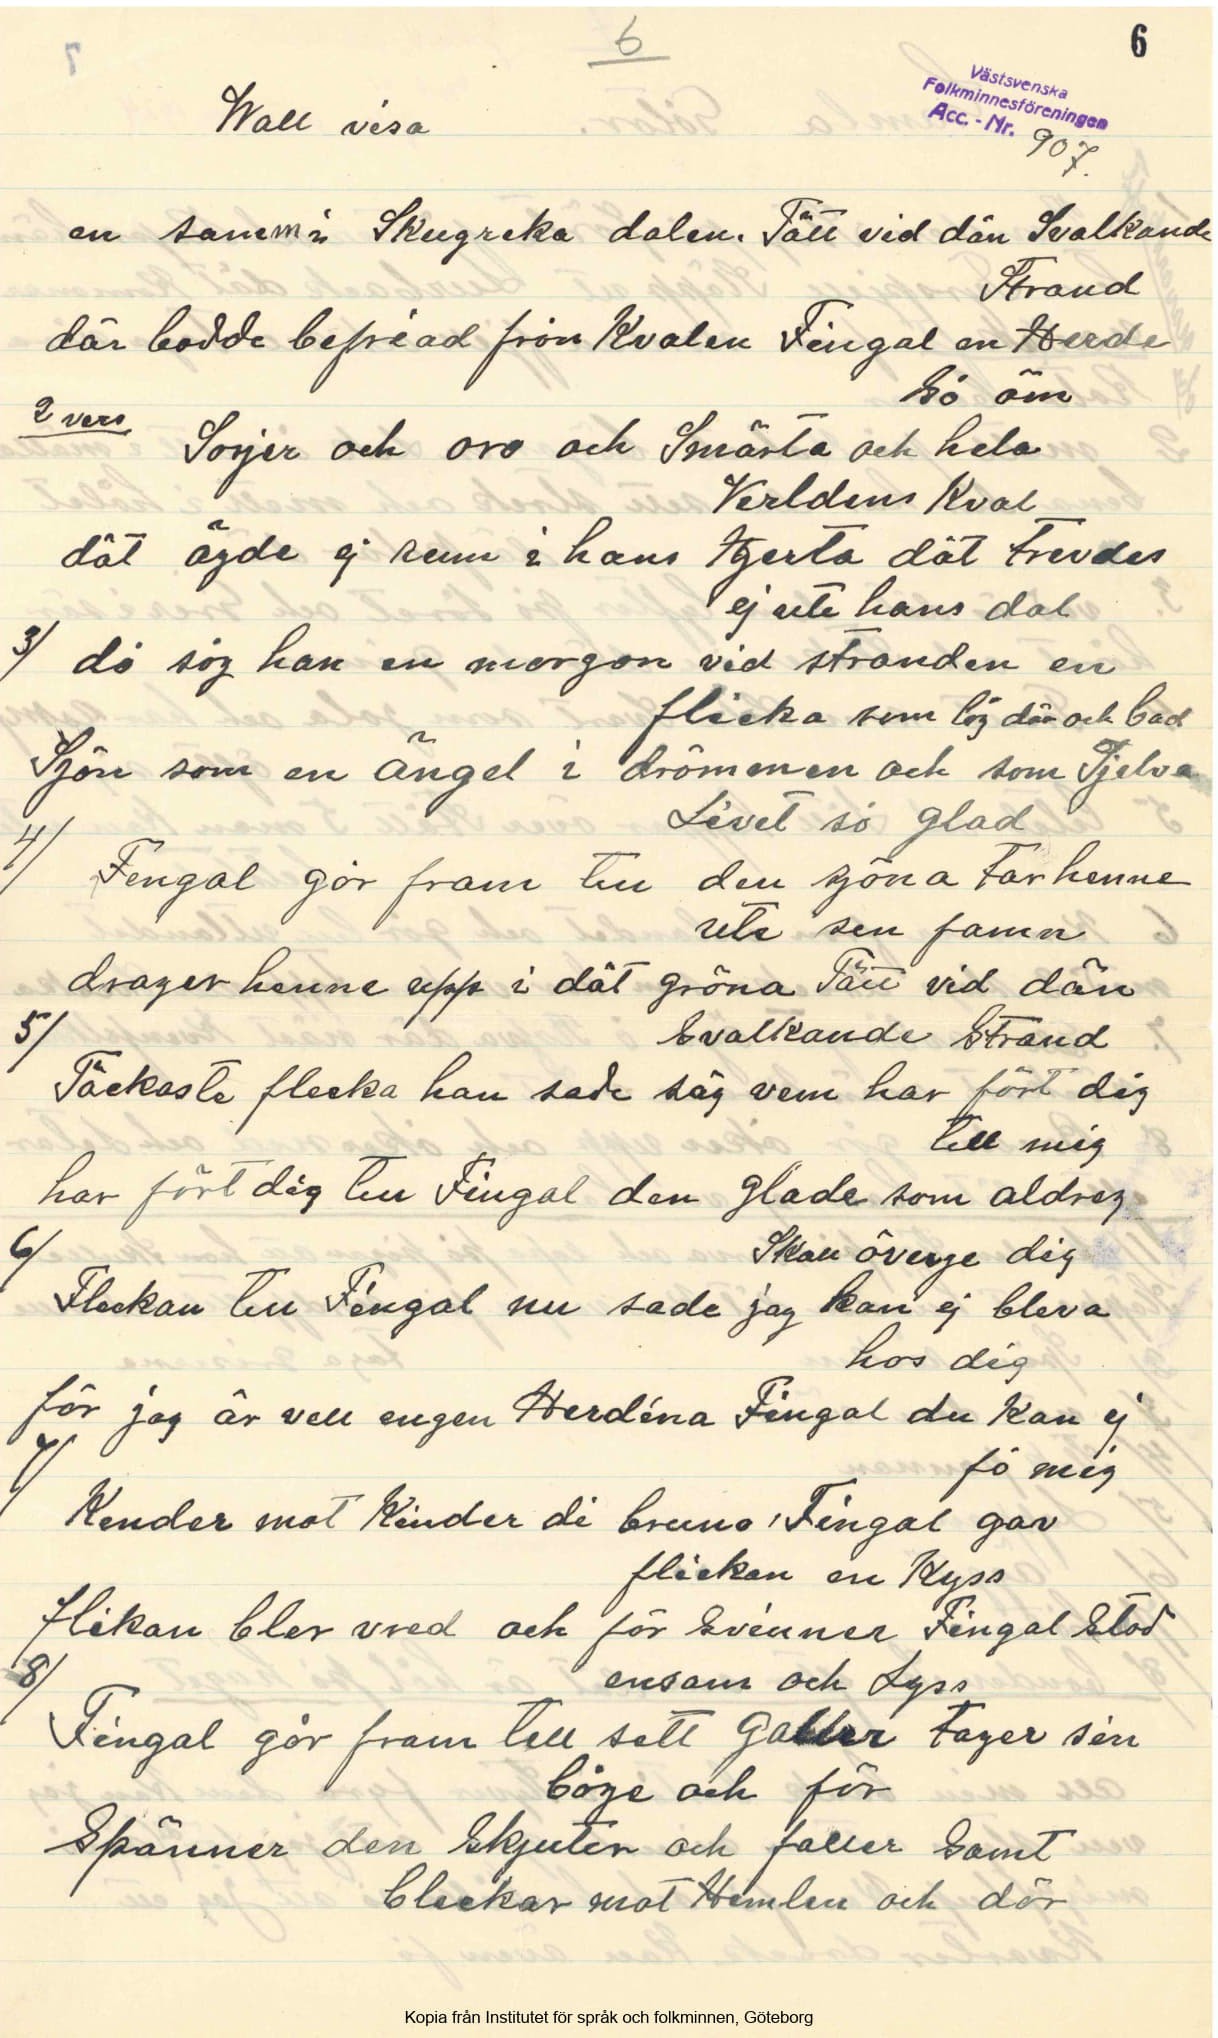 6
6
Västsvenska
Folkminnesföreningen
Acc. - Nr. 907.
Wall visa
en samm i Skugreka dalen. Tätt vid dän Svalkande
Strand
där bodde befriad från Kvalen Fingal en Herde
så öm
2 vers
Sorjer och oro och Smärta och hela
Verldens Kval
dät ägde ej rum i hans Hjerta dät trevdes
ej uti hans dal
3/ då såg han en morgon vid stranden en
flicka som låg där och bad
Sjön som en ängel i drömmen och som Sjelva
Livet så glad
4/
Fingal går fram till den sjöna Tar henne
uti sen famn
drager henne upp i dät gröna Tätt vid dän
Svalkande Strand
5/
Täckaste flecka han sade säg vem har fört dig
till mig
har fört dig till Fingal den glade som aldreg
Skall överge dig
6/
Fleckan till Fingal nu sade jag kan ej bleva
hos dig
för jag är vell engen Herdina Fingal du kan ej
få mig
7/
Kender mot Kinder di bruno, Fingal gav
flickan en Kyss
flikan blev vred och för Svinner Fingal Stod
ensam och Lyss
8/
Fingal går fram till sett Galler tager sin
båge och för
Spänner den Skjuter och faller Samt
bleckar mot Hemlen och dör
Kopia från Institutet för språk och folkminnen, Göteborg